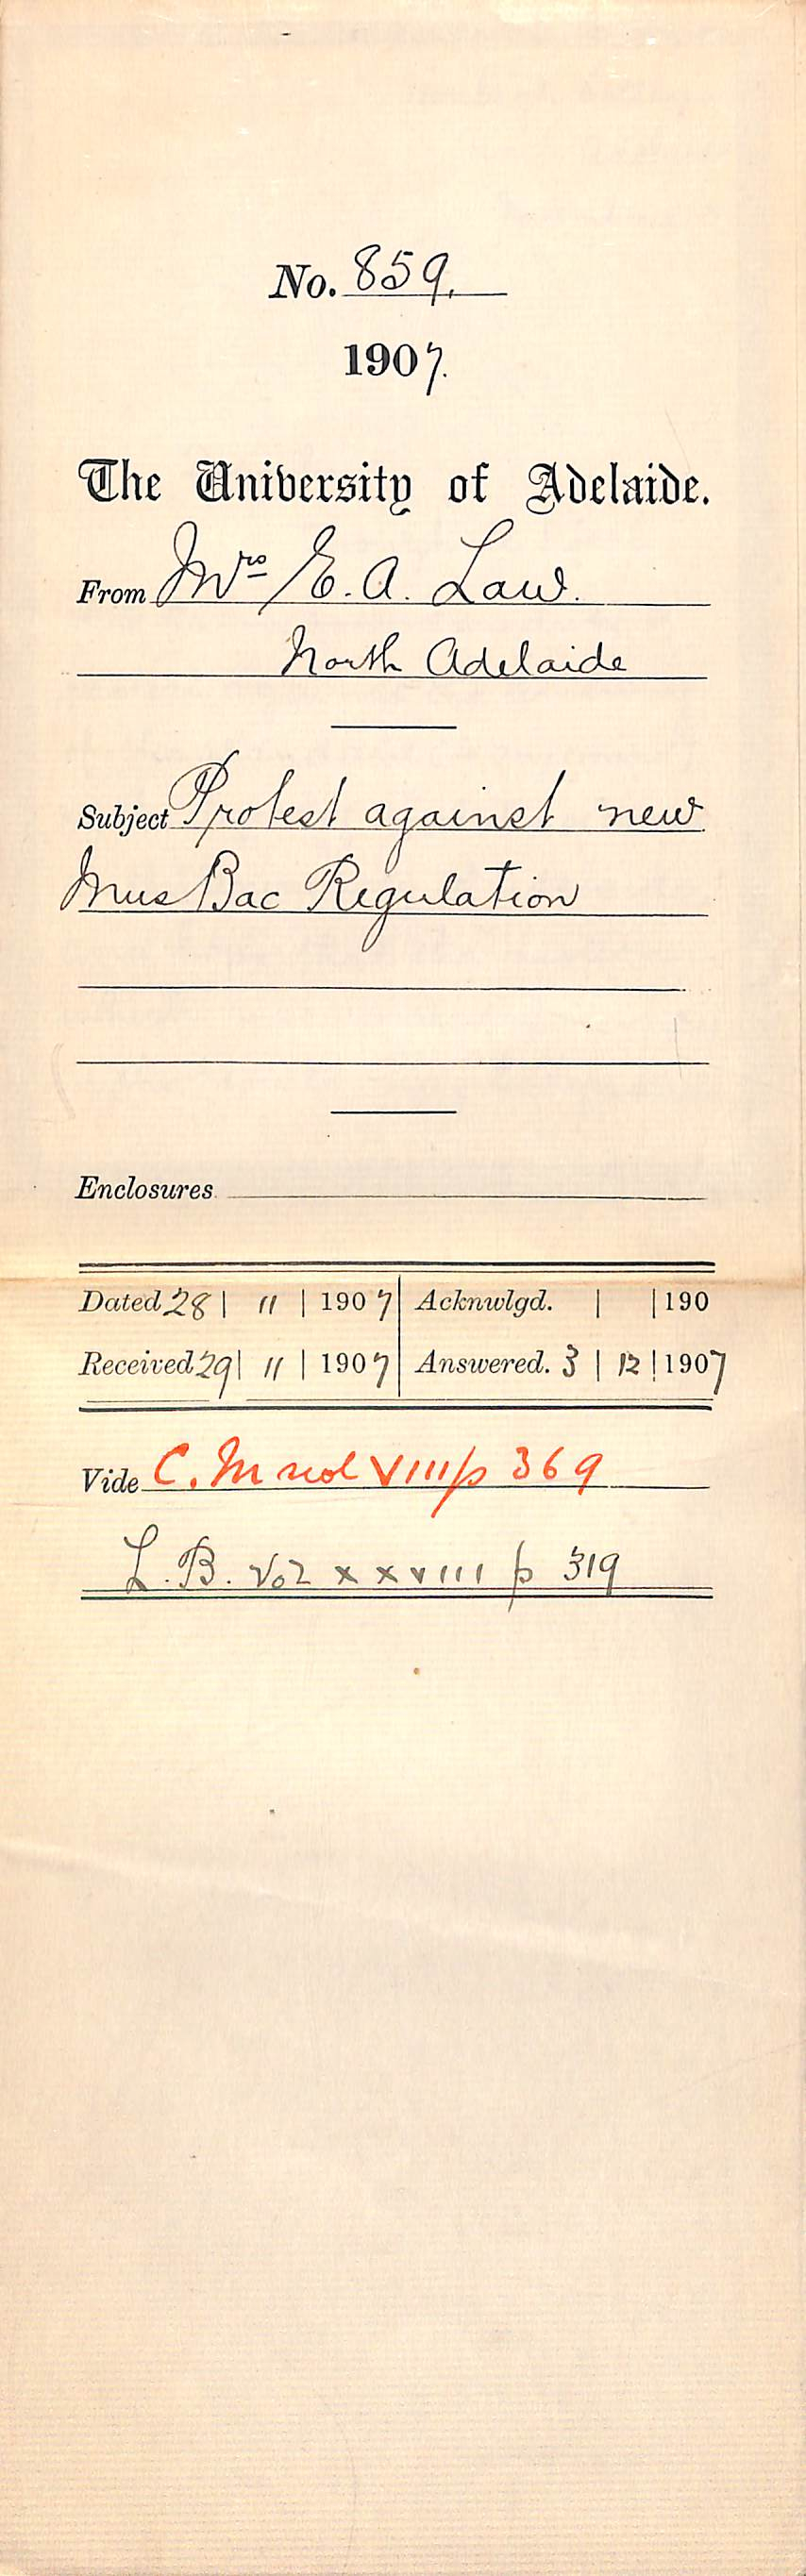 No. 859.
1907.
The University of Adelaide.
From Mrs E. A. Law.
North Adelaide
Subject Protest against new
Mus Bac Regulation
Enclosures
Dated 28 | 11 | 1907 Acknwlgd. | | 190
Received 29 | 11 | 1907 Answered. 3 | 12 | 1907
Vide C. M vol VIII p 369
L. B. Vol xxviii p 319